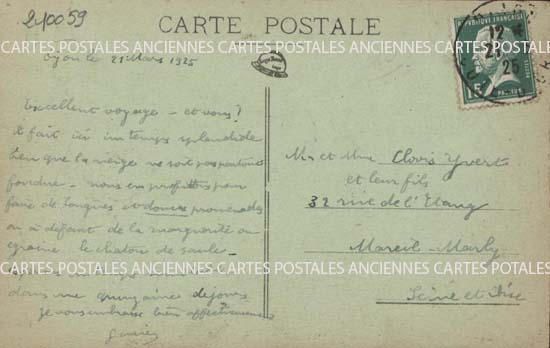 240059
CARTE POSTALE
le 21 Mars 1925
Excellent voyage - et vous ?
il fait ici un temps splendide
bien que la neige ne soit pas partout
fondue - nous en profitons pour
faire de longues et douces promenades
ou à défaut de la marguerite on
égraine le chaton de saule.
dans une quinzaine de jours
je vous embrasse bien affectueusement
RÉPUBLIQUE FRANÇAISE
POSTES
15c
PASTEUR
12
25
Mr et Mme Clovis Yvert
et leur fils
32 rue de l'Etang
Mareil-Marly
Seine et Oise
CARTES POSTALES ANCIENNES CARTES POSTALES ANCIENNES CARTES POSTALES ANCIENNES